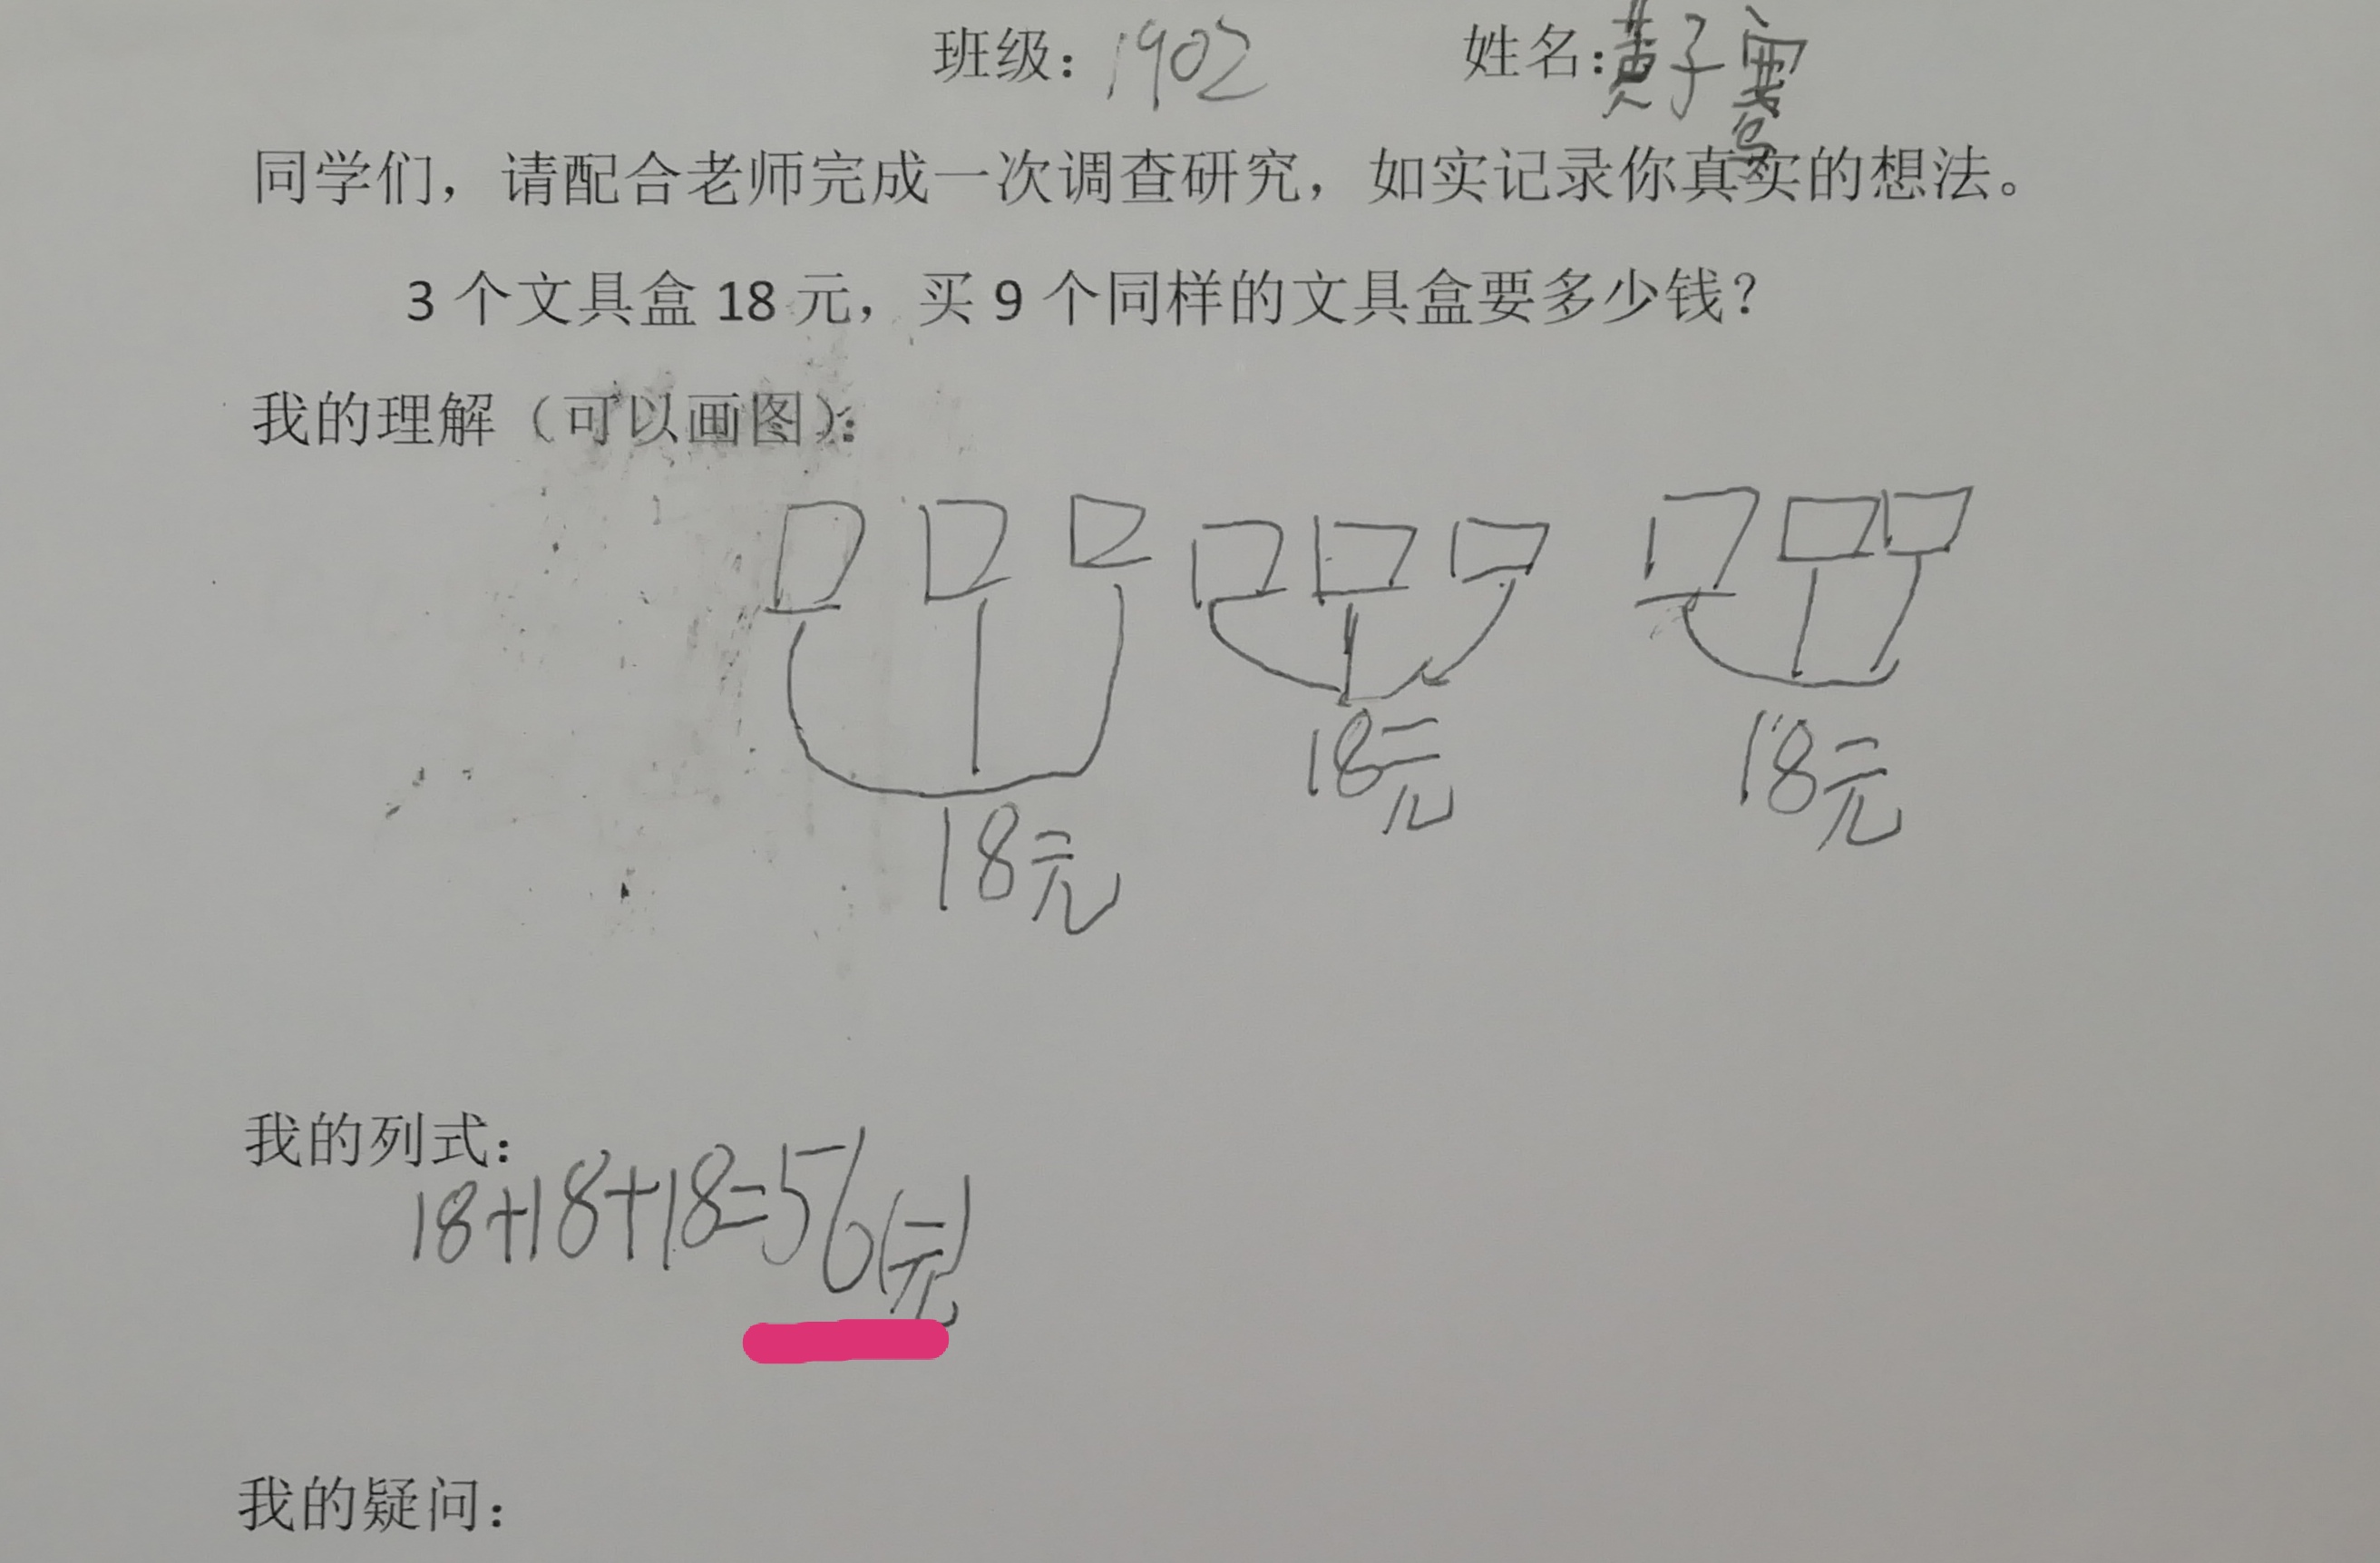 班级：1902 姓名：黄子
同学们，请配合老师完成一次调查研究，如实记录你真实的想法。
3 个文具盒 18 元，买 9 个同样的文具盒要多少钱？
我的理解（可以画图）：
18元 18元 18元
我的列式：
18+18+18=56(元)
我的疑问：